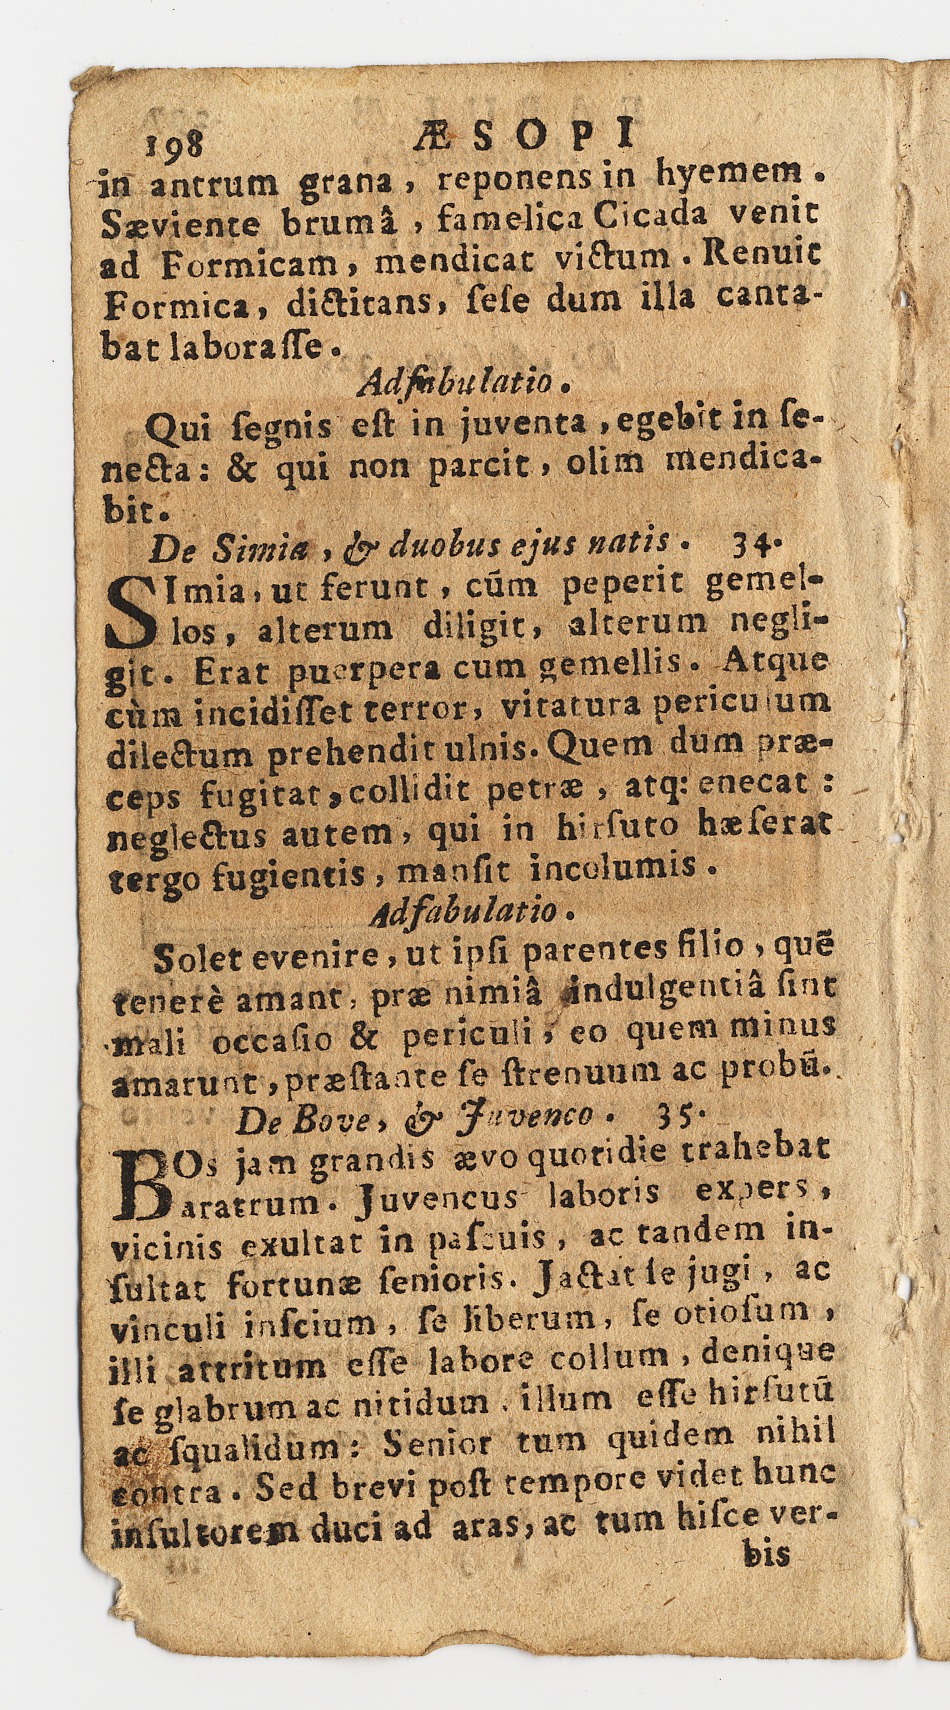 198 ÆSOPI
in antrum grana, reponens in hyemem.
Sæviente brumâ, famelica Cicada venit
ad Formicam, mendicat victum. Renuit
Formica, dictitans, ſeſe dum illa canta-
bat laboraſſe.
Adfabulatio.
Qui ſegnis eſt in juventa, egebit in ſe-
necta: & qui non parcit, olim mendica-
bit.
De Simia, & duobus ejus natis. 34.
SImia, ut ferunt, cũm peperit gemel-
los, alterum diligit, alterum negli-
git. Erat puerpera cum gemellis. Atque
cùm incidiſſet terror, vitatura periculum
dilectum prehendit ulnis. Quem dum præ-
ceps fugitat, collidit petræ, atq: enecat:
neglectus autem, qui in hirſuto hæſerat
tergo fugientis, manſit incolumis.
Adfabulatio.
Solet evenire, ut ipſi parentes filio, quẽ
tenerè amant, præ nimiâ indulgentiâ ſint
mali occaſio & periculi; eo quem minus
amarunt, præſtante ſe ſtrenuum ac probũ.
De Bove, & Juvenco. 35.
BOs jam grandis ævo quotidie trahebat
aratrum. Juvencus laboris expers,
vicinis exultat in paſcuis, ac tandem in-
ſultat fortunæ ſenioris. Jactat ſe jugi, ac
vinculi inſcium, ſe liberum, ſe otioſum,
illi attritum eſſe labore collum, denique
ſe glabrum ac nitidum, illum eſſe hirſutũ
ac ſqualidum: Senior tum quidem nihil
contra. Sed brevi poſt tempore videt hunc
inſultorem duci ad aras, ac tum hiſce ver-
bis